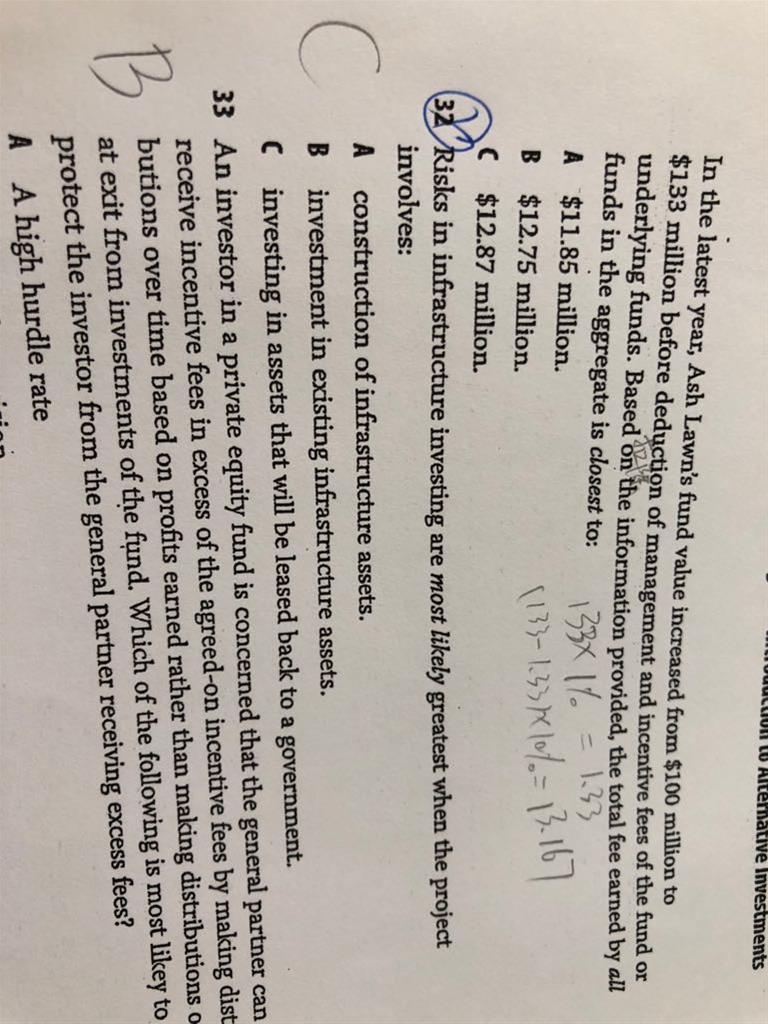 to Alternative Investments
In the latest year, Ash Lawn's fund value increased from $100 million to
$133 million before deduction of management and incentive fees of the fund or
underlying funds. Based on the information provided, the total fee earned by all
funds in the aggregate is closest to:
A $11.85 million.
B $12.75 million.
C $12.87 million.
133×1% = 1.33
(133-1.33)×10%=13.167
32 Risks in infrastructure investing are most likely greatest when the project
involves:
C
A construction of infrastructure assets.
B investment in existing infrastructure assets.
C investing in assets that will be leased back to a government.
33 An investor in a private equity fund is concerned that the general partner can
receive incentive fees in excess of the agreed-on incentive fees by making dist
butions over time based on profits earned rather than making distributions o
at exit from investments of the fund. Which of the following is most likey to
protect the investor from the general partner receiving excess fees?
B
A A high hurdle rate